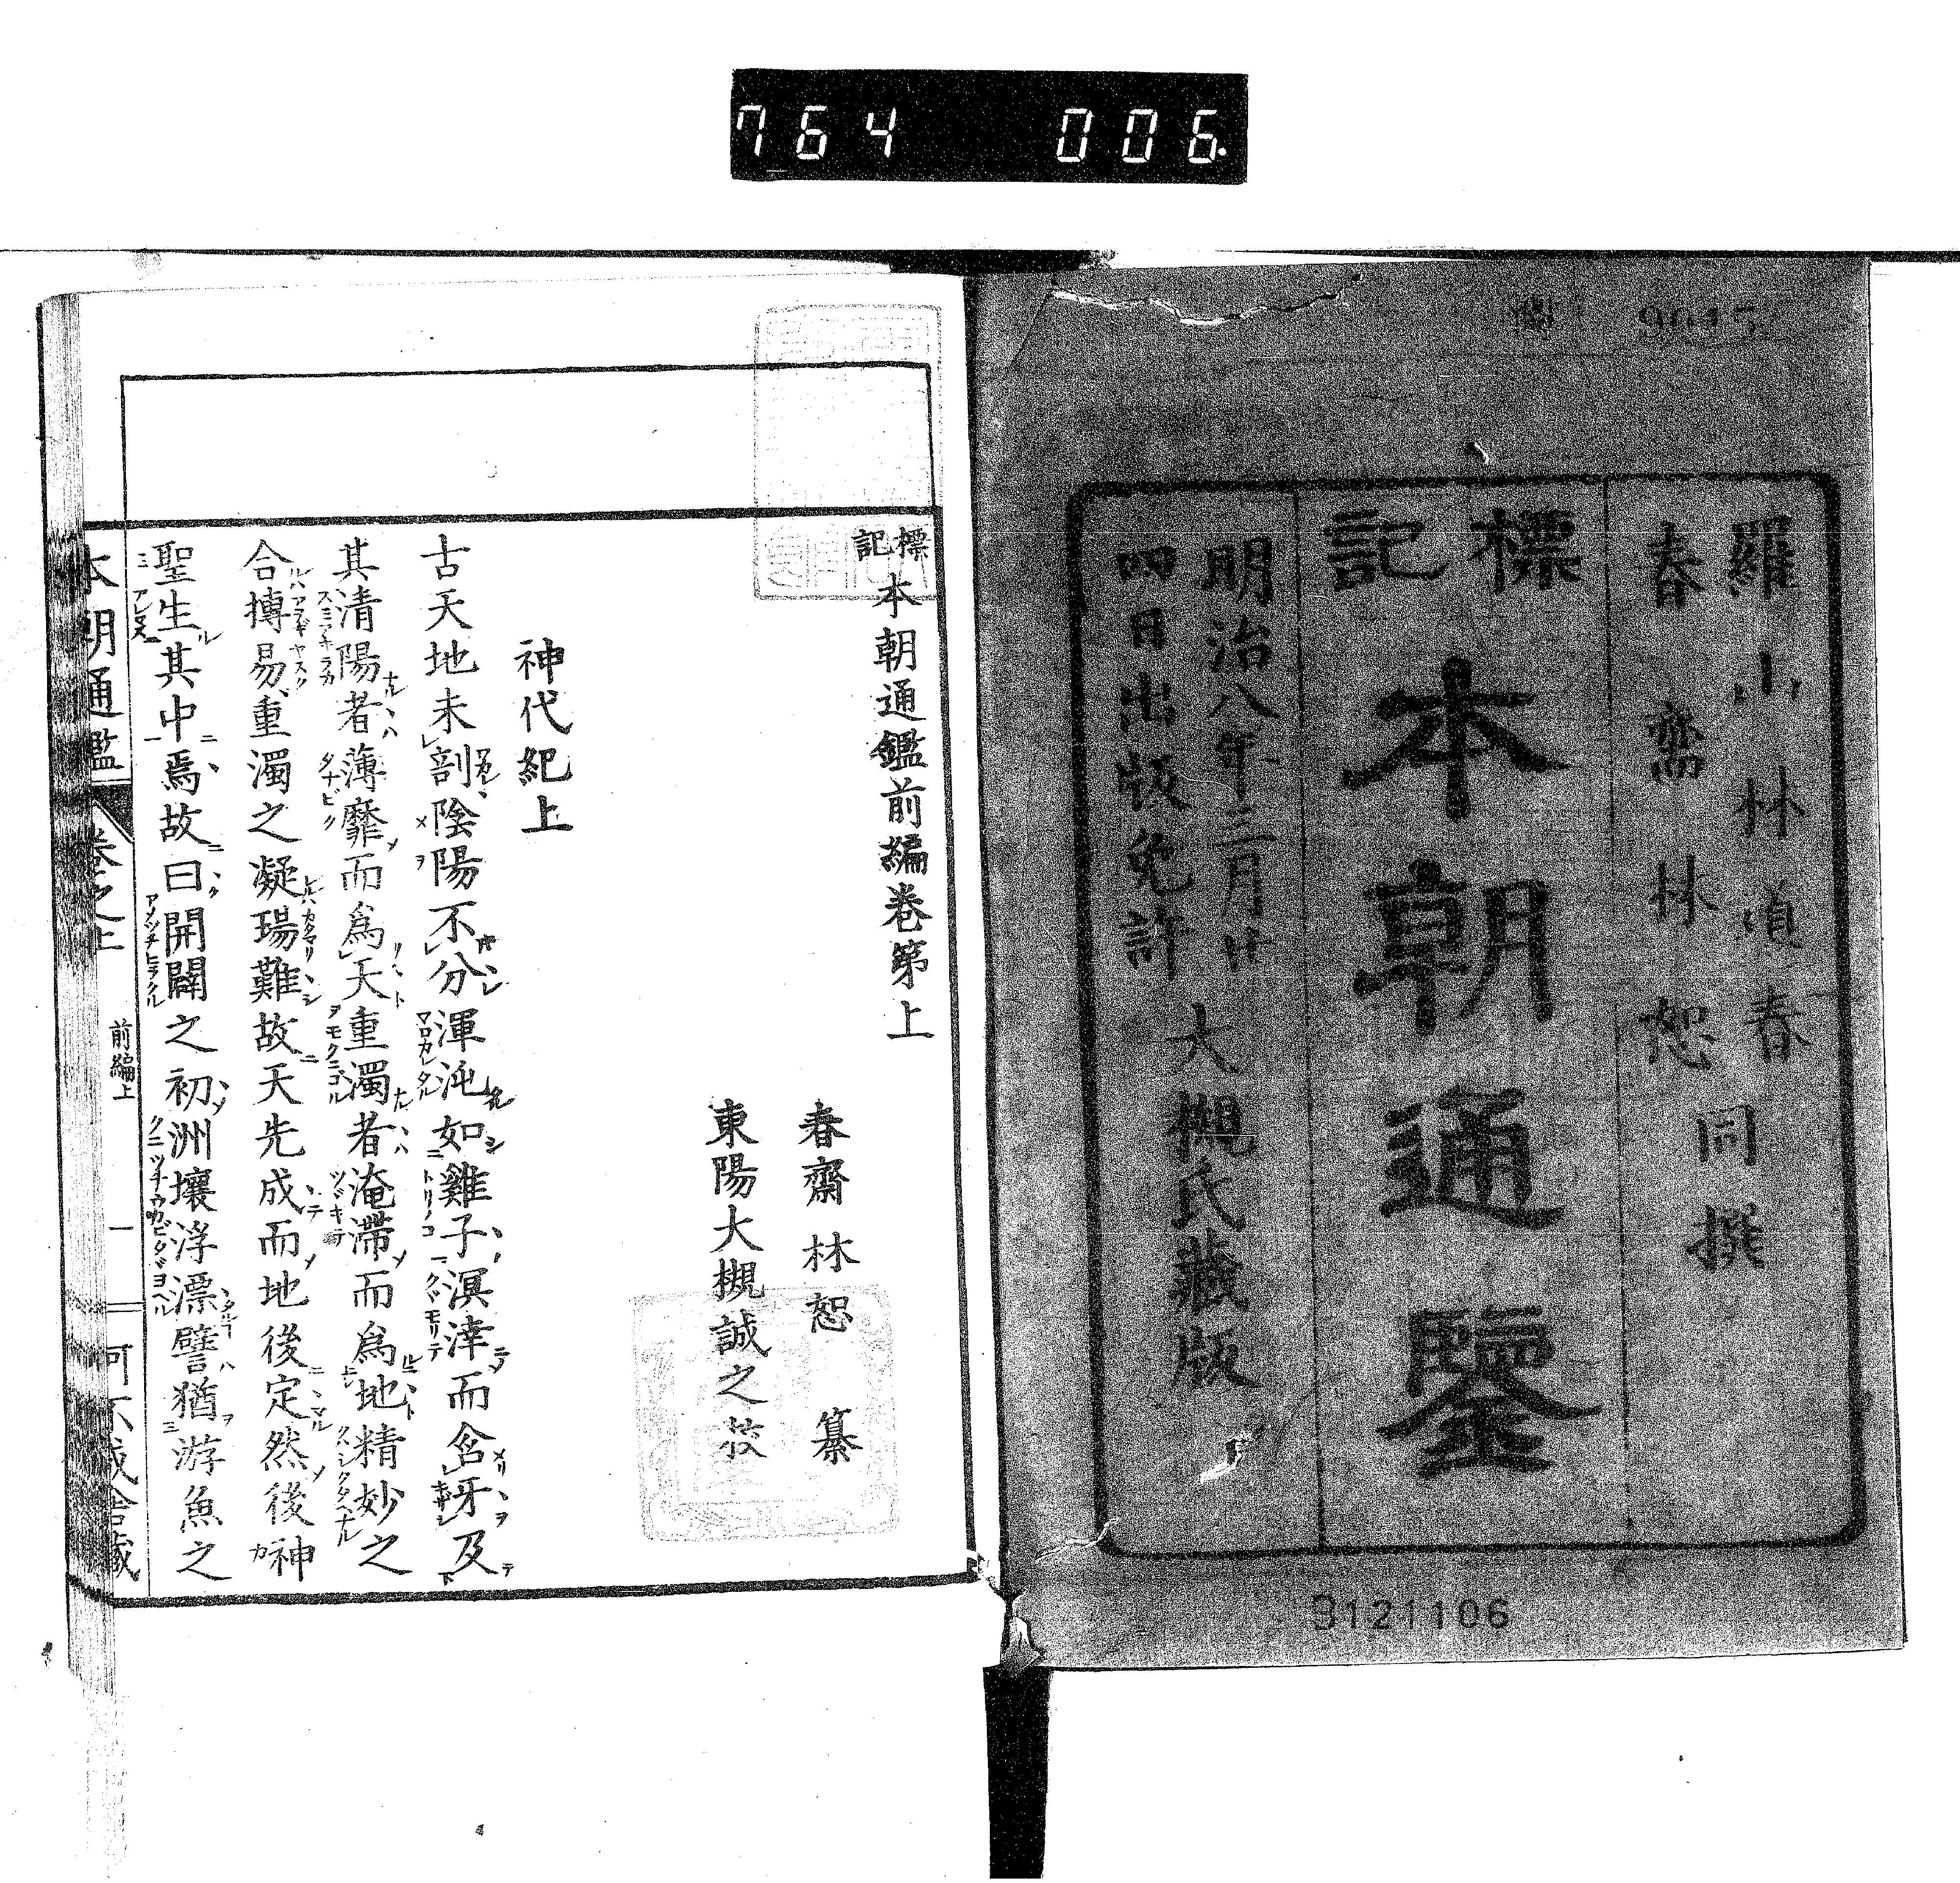 764 006.
羅山林道春
春齋林恕
同撰
標記
本朝通鑒
明治八年三月廿
四日出版免許
大槻氏藏版
3121106
標記本朝通鑑前編卷第上
春齋林恕 纂
東陽大槻誠之 校
神代紀上
古天地未剖陰陽不分渾沌如雞子溟涬而含牙及
其清陽者薄靡而爲天重濁者淹滯而爲地精妙之
合摶易重濁之凝瑒難故天先成而地後定然後神
聖生其中焉故曰開闢之初洲壤浮漂譬猶游魚之
本朝通鑑 卷之上 前編上 一